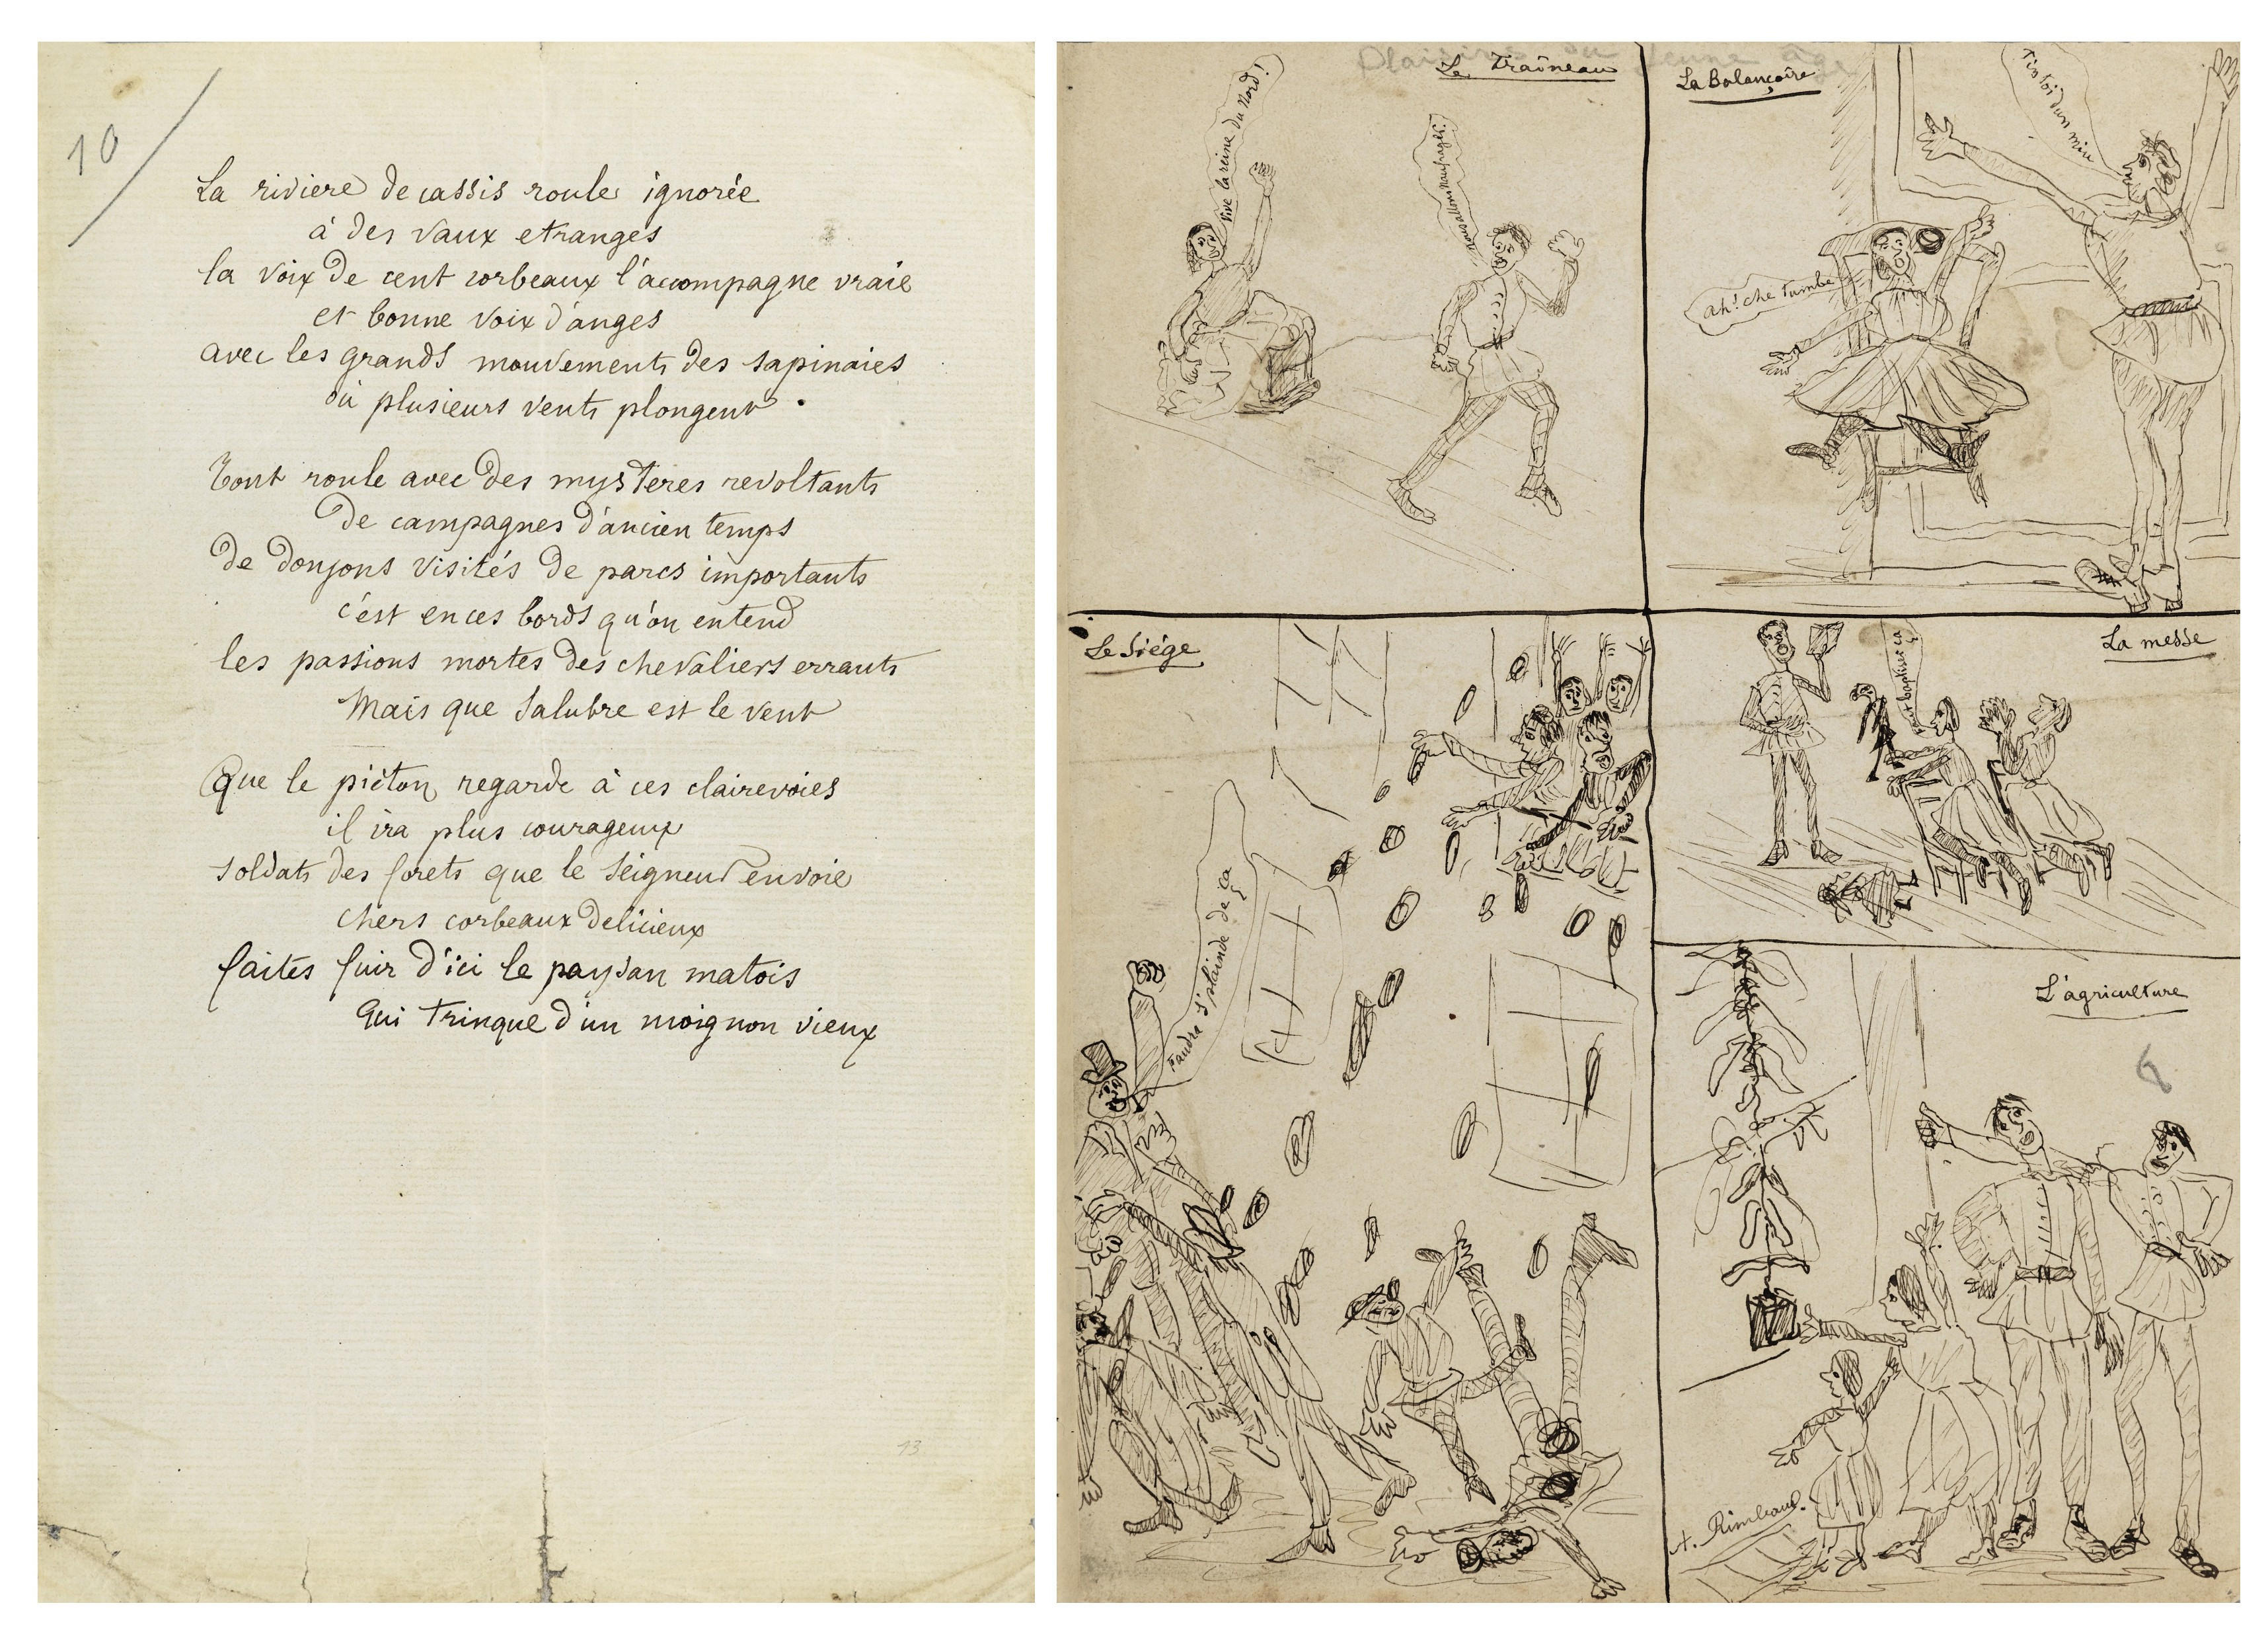 10
La riviere de cassis roule ignorée
à des vaux etranges
la voix de cent corbeaux l'accompagne vraie
et bonne voix d'anges
avec les grands mouvements des sapinaies
où plusieurs vents plongent.
Tout roule avec des mystères revoltants
De campagnes d'ancien temps
De donjons visités De parcs importants
c'est en ces bords qu'on entend
les passions mortes des chevaliers errants
Mais que salubre est le vent
Que le piéton regarde à ces clairevoies
il ira plus courageux
soldats des forets que le Seigneur envoie
chers corbeaux delicieux
faites fuir d'ici le paysan matois
Qui trinque d'un moignon vieux
13
Plaisirs du jeune âge
Le Traîneau
Vive la reine du Nord!
nous allons naufrager!
La Balançoire
ah! che tumbe
Le Siége
Faudra s'plainde de ça
La messe
baptisez ça
L'agriculture
6
A. Rimbaud.